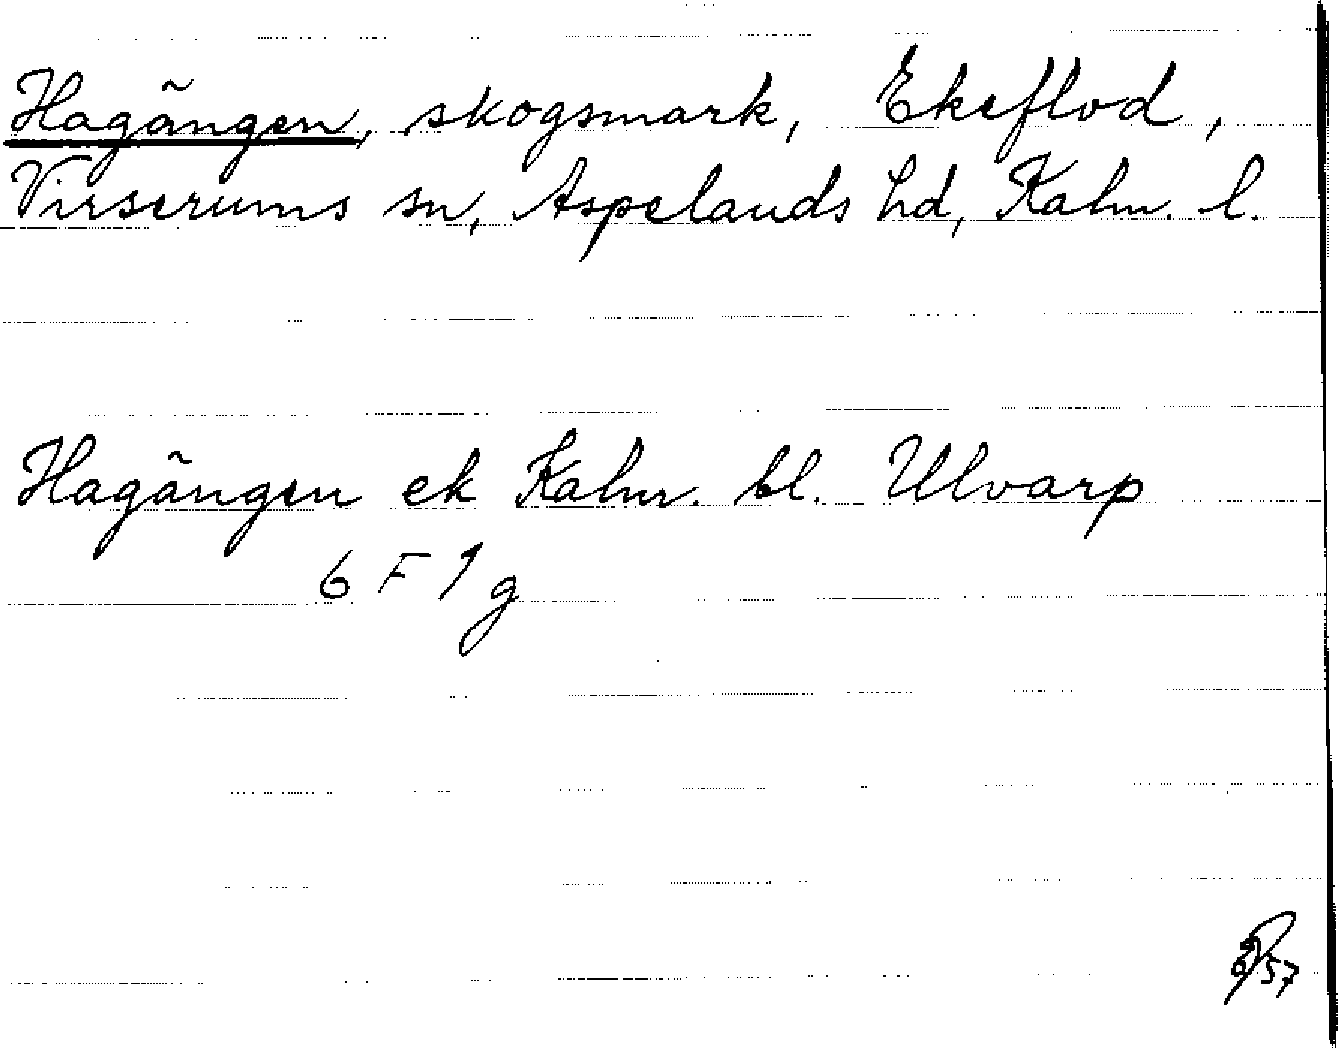 Hagängen, skogsmark, Ekeflod,
Virserums sn, Aspelands hd, Kalm. l.
Hagängen ek Kalm. bl. Ulvarp
6 F 1 g
57